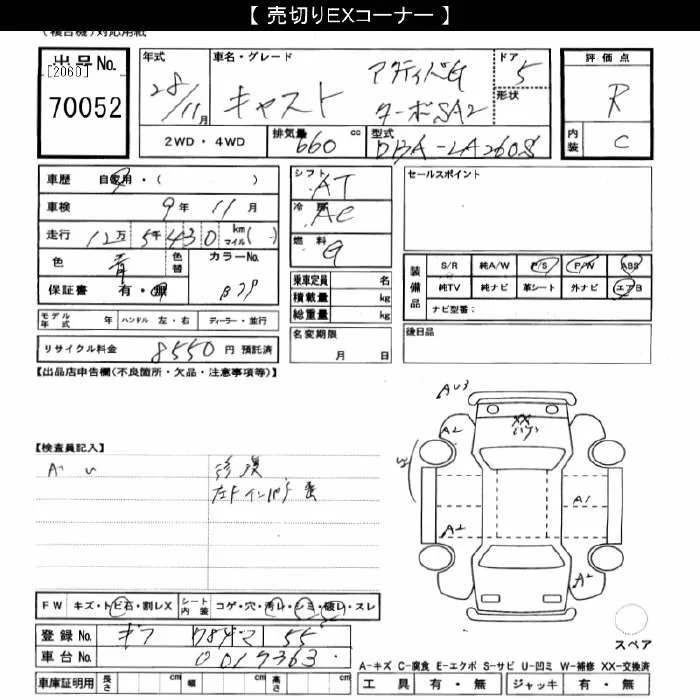 【 売切りEXコーナー 】
(複合機)対応用紙
出品No.
[2060]
70052
年式
28/11月
車名・グレード
キャスト
アクティバG
ターボSA2
ドア
5
形状
評価点
R
内装
C
2WD・4WD
排気量 660 cc
型式 DBA-LA260S
車歴 自家用・( )
車検 9年 11月
走行 12万5千430 km マイル( )
色 青 色替
カラーNo. B79
保証書 有・無
シフト AT
冷房 AC
燃料 G
乗車定員 名
積載量 kg
総重量 kg
セールスポイント
装備品
S/R 純A/W P/S P/W ABS
純TV 純ナビ 革シート 外ナビ エアB
ナビ型番:
モデル年式 年 ハンドル 左・右 ディーラー・並行
リサイクル料金 8550 円 預託済
名変期限
月 日
後日品
【出品店申告欄(不良箇所・欠品・注意事項等)】
【検査員記入】
A・U
修復
左Fインパネ
AU3
A2
XX
A1
A2
A2
FW キズ・トビ石・割レX
シート内装 コゲ・穴・汚レ・シミ・破レ・スレ
登録No. ギフ
55
車台No. 0017363
スペア
A-キズ C-腐食 E-エクボ S-サビ U-凹ミ W-補修 XX-交換済
車庫証明用 長さ cm 幅 cm 高さ cm
工具 有・無 ジャッキ 有・無